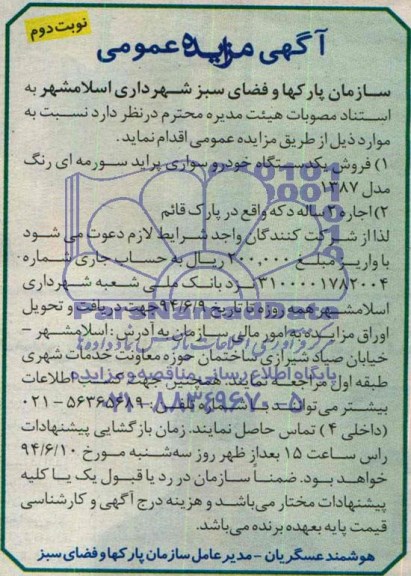 نوبت دوم
آگهی مزایده عمومی
سازمان پارکها و فضای سبز شهرداری اسلامشهر به
استناد مصوبات هیئت مدیره محترم درنظر دارد نسبت به
موارد ذیل از طریق مزایده عمومی اقدام نماید.
۱) فروش یکدستگاه خودرو سواری پراید سورمه ای رنگ
مدل ۱۳۸۷
۲) اجاره ۳ ساله دکه واقع در پارک قائم
لذا از شرکت کنندگان واجد شرایط لازم دعوت می شود
با واریز مبلغ ۲۰۰,۰۰۰ ریال به حساب جاری شماره
۳۱۰۰۰۰۱۷۸۲۰۰۴ نزد بانک ملی شعبه شهرداری
اسلامشهر همه روزه تا تاریخ ۹۴/۶/۹ جهت دریافت و تحویل
اوراق مزایده به امور مالی سازمان به آدرش : اسلامشهر -
خیابان صیاد شیرازی ساختمان حوزه معاونت خدمات شهری
طبقه اول مراجعه نمایند. همچنین جهت کسب اطلاعات
بیشتر می توانند با شماره تلفن : ۵۶۳۶۵۶۸۹ - ۰۲۱
(داخلی ۴) تماس حاصل نمایند. زمان بازگشایی پیشنهادات
راس ساعت ۱۵ بعداز ظهر روز سه شنبه مورخ ۹۴/۶/۱۰
خواهد بود. ضمناً سازمان در رد یا قبول یک یا کلیه
پیشنهادات مختار می باشد و هزینه درج آگهی و کارشناسی
قیمت پایه بعهده برنده می باشد.
هوشمند عسگریان - مدیر عامل سازمان پارکها و فضای سبز
ParsNamadData
پایگاه اطلاع رسانی مناقصه و مزایده
۰۲۱-۸۸۳۴۹۶۷۰-۵